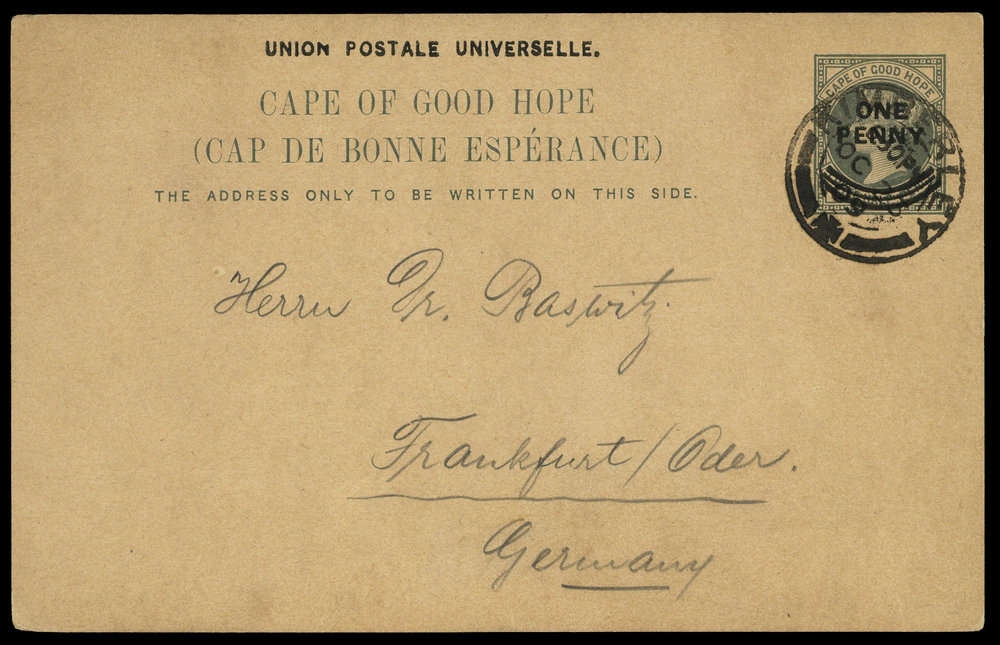 UNION POSTALE UNIVERSELLE.
CAPE OF GOOD HOPE
(CAP DE BONNE ESPÉRANCE)
THE ADDRESS ONLY TO BE WRITTEN ON THIS SIDE.
CAPE OF GOOD HOPE
ONE
PENNY
OC
Herrn Dr. Baswitz.
Frankfurt/Oder.
Germany